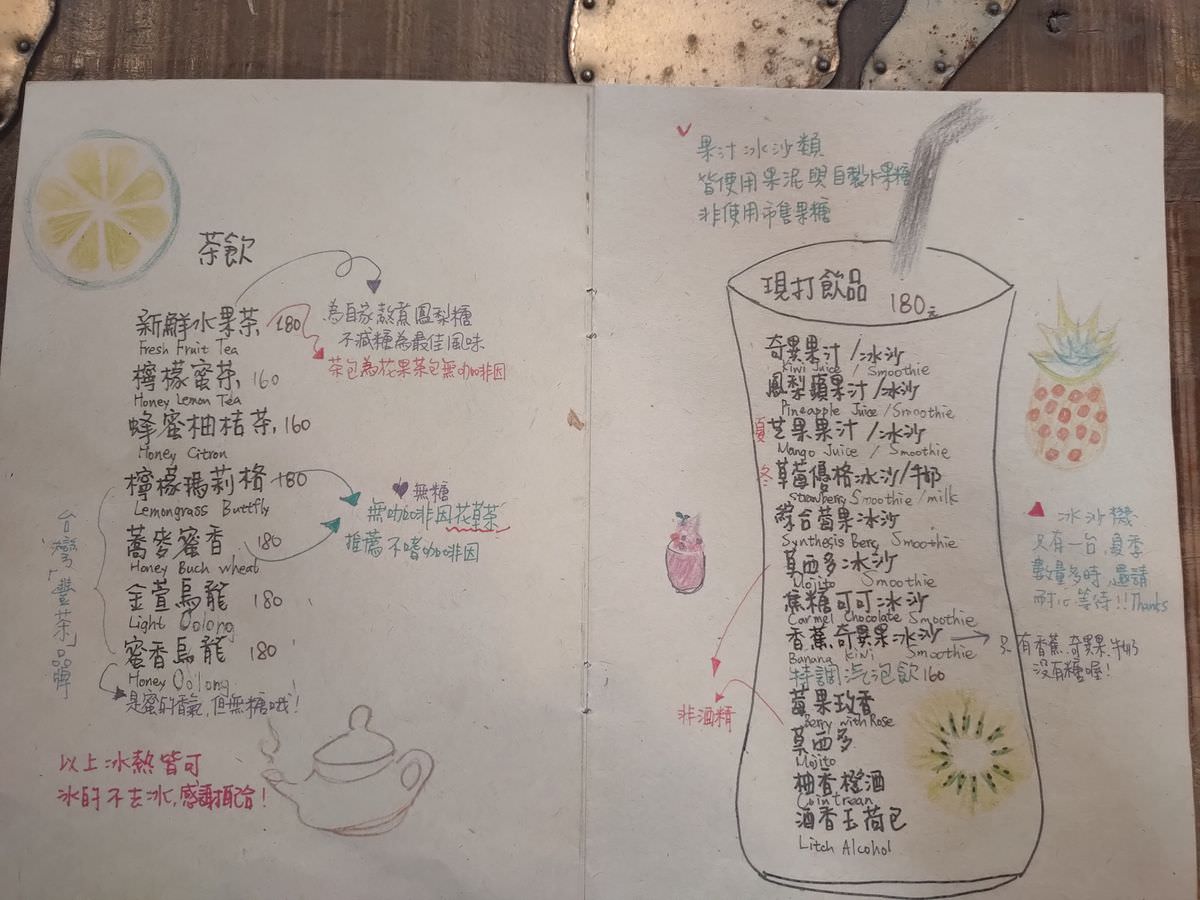 茶飲
新鮮水果茶 180
Fresh Fruit Tea
為自家熬煮鳳梨糖
不減糖為最佳風味
茶包為花果茶包無咖啡因
檸檬蜜茶 160
Honey Lemon Tea
蜂蜜柚桔茶 160
Honey Citron
檸檬瑪莉格 180
Lemongrass Buttfly
無糖
無咖啡因花草茶
推薦不嗜咖啡因
蕎麥蜜香 180
Honey Buch wheat
金萱烏龍 180
Light Oolong
蜜香烏龍 180
Honey Oolong
是蜜的香氣,但無糖哦!
台灣「豐茶」品牌
以上冰熱皆可
冰的不去冰,感謝配合!
果汁冰沙類
皆使用果泥與自製水果糖
非使用市售果糖
現打飲品 180元
奇異果汁/冰沙
Kiwi Juice / Smoothie
鳳梨蘋果汁/冰沙
Pineapple Juice / Smoothie
夏 芒果果汁/冰沙
Mango Juice / Smoothie
冬 草莓優格冰沙/牛奶
Strawberry Smoothie / milk
綜合莓果冰沙
Synthesis Berry Smoothie
莫西多冰沙
Mojito Smoothie
焦糖可可冰沙
Carmel Chocolate Smoothie
香蕉奇異果冰沙
Banana KiWi Smoothie
只有香蕉.奇異果.牛奶
沒有糖喔!
特調汽泡飲 160
莓果玫香
Berry with Rose
莫西多
Mojito
非酒精
柚香橙酒
Cointreau
酒香玉荷包
Litch Alcohol
冰沙機
只有一台,夏季
數量多時,還請
耐心等待!! Thanks